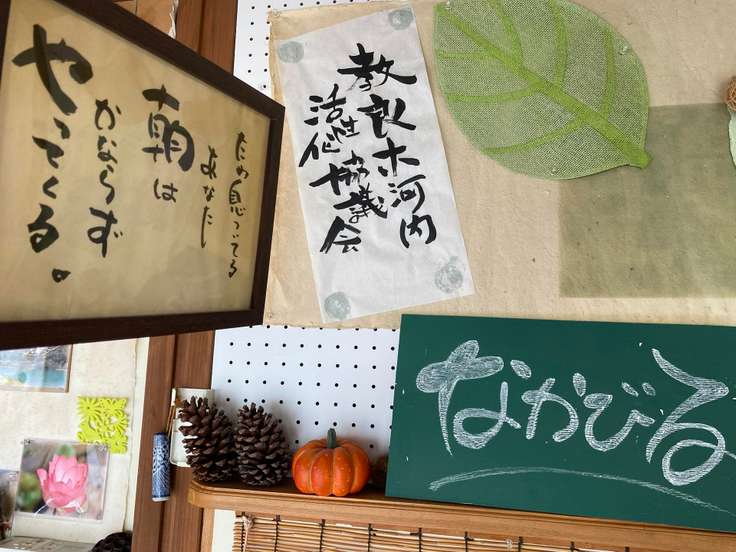 ため息ついてる
あなたし
朝は
かならず
やってくる。
教良木河内
活性化協議会
なかびる